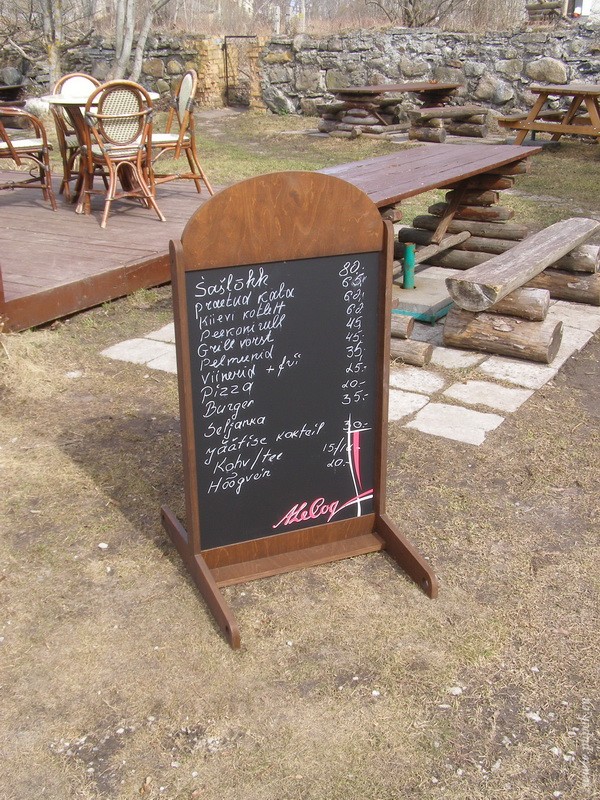 Šašlõkk 80.-
praetud kala 65,-
Kiievi kotlett 62,-
Peekoni rull 62
Grill vorst 45,-
Pelmenid 45.-
Viinerid + fri 35,-
Pizza 25.-
Burger 20.-
Seljanka 35.-
Jäätise koktail 30.-
Kohv/tee 15/12.-
Hõõgvein 20.-
A.Le Coq